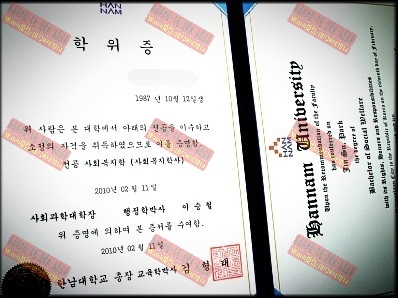 HAN
NAM
학 위 증
1987 년 10 월 12일생
위 사람은 본 대학에서 아래의 전공을 이수하고
소정의 자격을 취득하였으므로 이를 증명함.
전공 사회복지학 (사회복지학사)
2010 년 02 월 11 일
사회과학대학장 행정학박사 이 승 철
위 증명에 의하여 본 증서를 수여함.
2010 년 02 월 11 일
한남대학교 총장 교육학박사 김 형 태
HAN
NAM
Hannam University
Upon the Recommendation of the Faculty
has conferred on
Jin Su, Park
the degree of
Bachelor of Social Welfare
with its Rights, Honors and Responsibilities